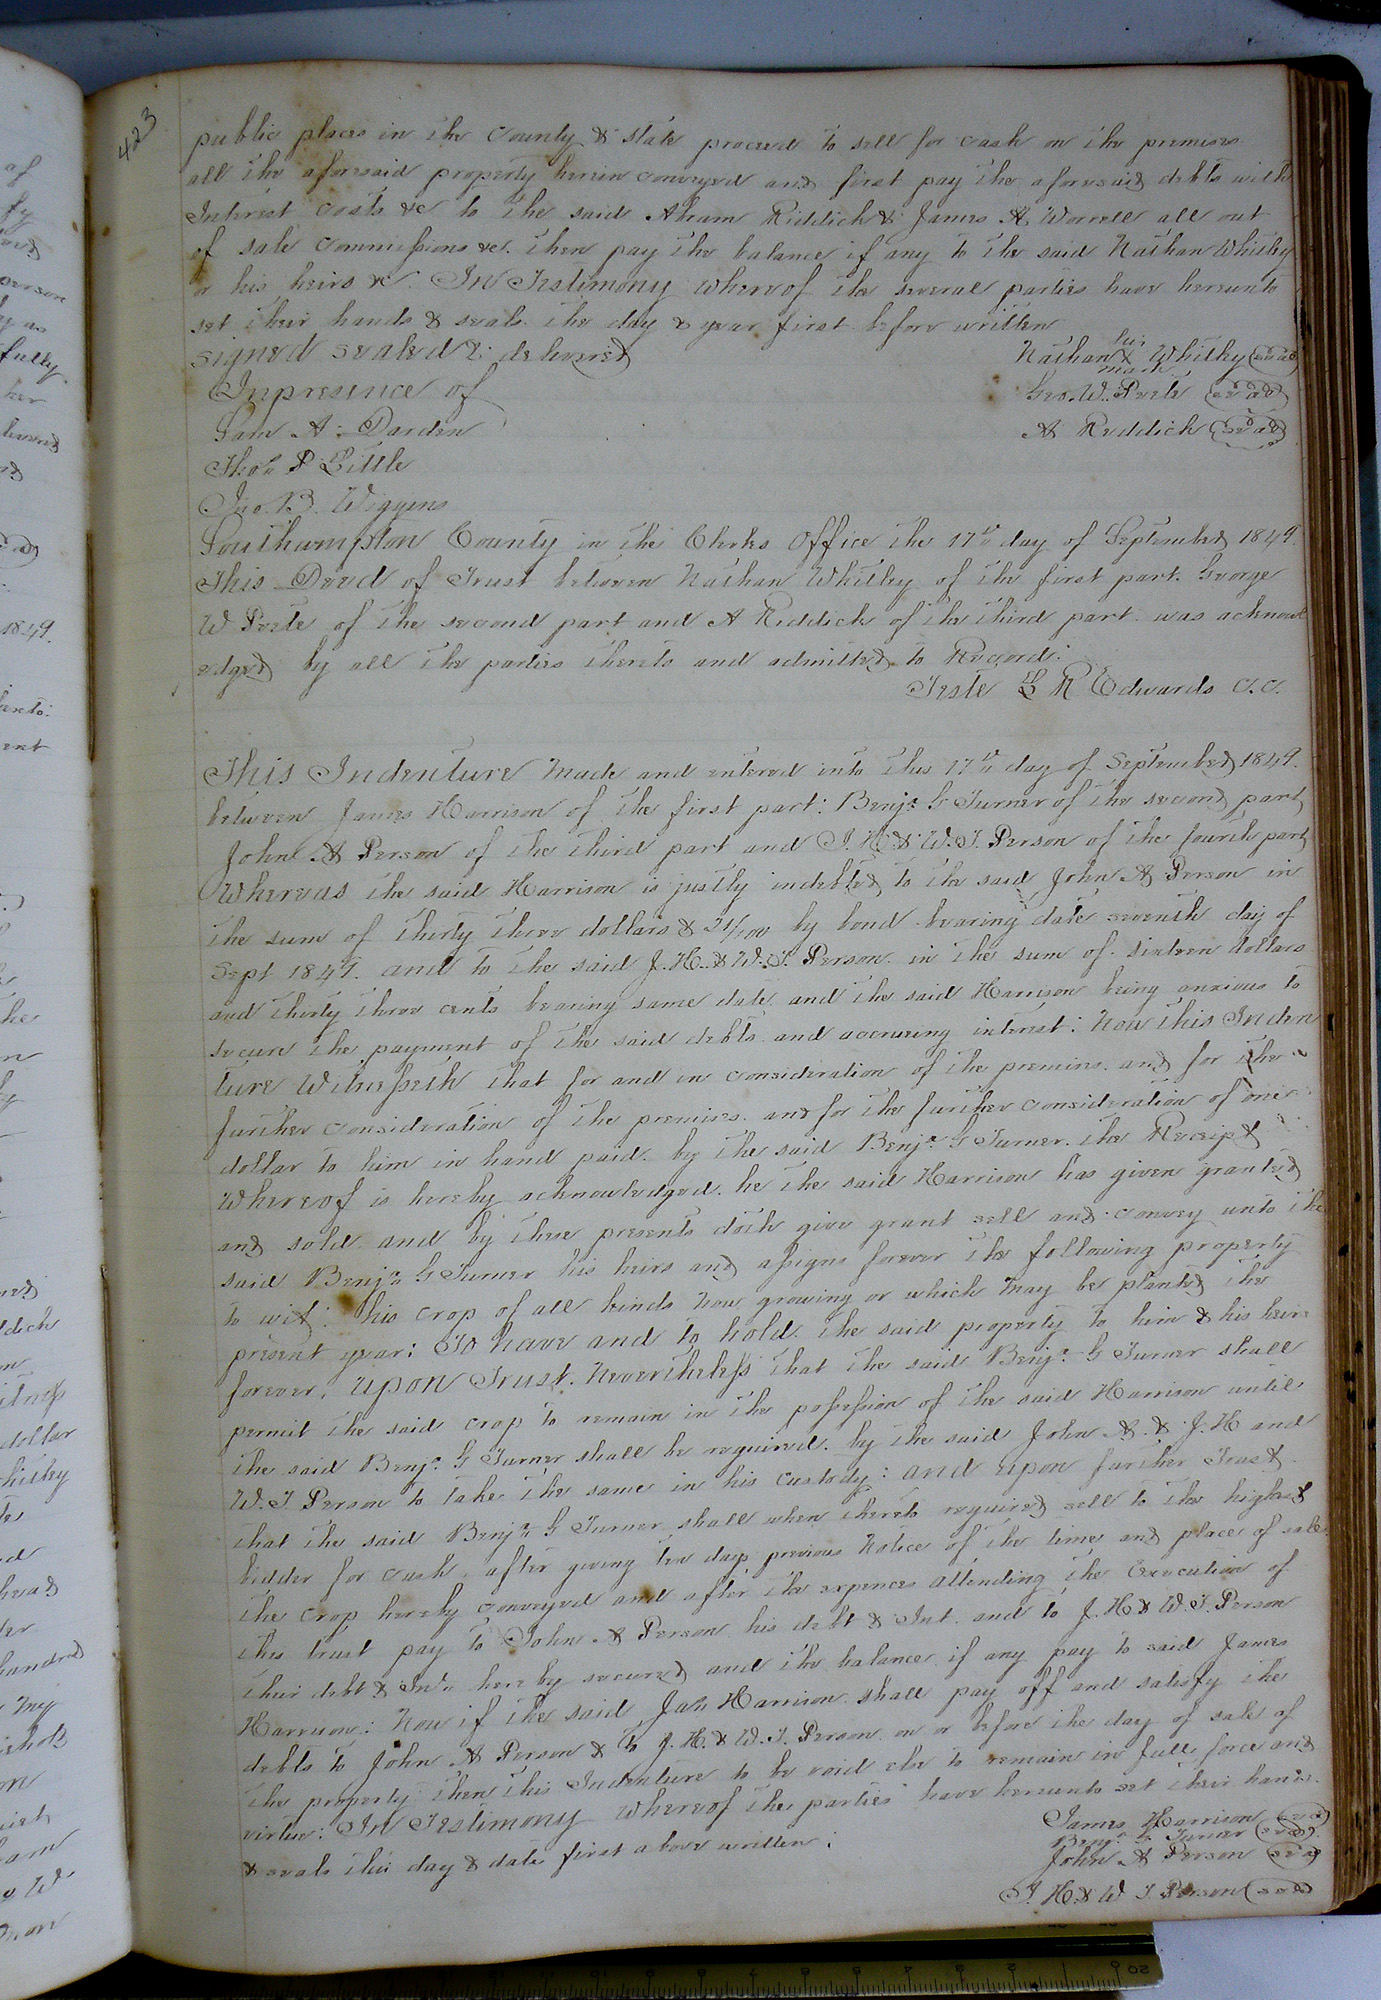 423
public places in the County & State proceed to sell for cash on the premises
all the aforesaid property herein conveyed and first pay the aforesaid debts with
Interest costs &c to the said Abram Riddick & James A Worrell all out
of sale commissions &c. then pay the balance if any to the said Nathan Whitley
or his heirs &c. In Testimony whereof the several parties have hereunto
set their hands & seals the day & year first before written
signed sealed & delivered
Nathan his X mark Whitley (seal)
In presence of
Geo. W. Peete (seal)
Sam A. Darden
A Riddick (seal)
Thos P Little
Jno. B. Wiggins
Southampton County in the Clerks Office the 17th day of September 1849.
This Deed of Trust between Nathan Whitley of the first part. George
W Peete of the second part and A Riddick of the third part was acknowl
edged by all the parties thereto and admitted to Record.
Teste L R Edwards C.C.
This Indenture Made and entered into this 17th day of September 1849.
between James Harrison of the first part: Benja G Turner of the second part
John A Person of the third part and J. H. & W. T. Person of the fourth part
Whereas the said Harrison is justly indebted to the said John A Person in
the sum of thirty three dollars & 31/100 by bond bearing date seventh day of
Sept 1849. and to the said J. H. & W. T. Person in the sum of sixteen dollars
and thirty three cents bearing same date and the said Harrison being anxious to
secure the payment of the said debts and accruing interest: Now this Inden
ture Witnesseth that for and in consideration of the premises and for the
further consideration of the premises and for the further consideration of one
dollar to him in hand paid by the said Benja G Turner the Receipt
whereof is hereby acknowledged. he the said Harrison has given granted
and sold and by these presents doth give grant sell and convey unto the
said Benja G Turner his heirs and assigns forever the following property
to wit: his crop of all kinds now growing or which may be planted the
present year: To have and to hold the said property to him & his heirs
forever, Upon Trust. Nevertheless that the said Benja G Turner shall
permit the said crop to remain in the possession of the said Harrison until
the said Benja G Turner shall be required by the said John A. & J. H and
W. T Person to take the same in his custody: and upon further Trust
that the said Benja G Turner shall when thereto required sell to the highest
bidder for cash, after giving ten days previous notice of the time and place of sale
the crop hereby conveyed and after the expences attending the Execution of
this trust pay to John A Person his debt & Int. and to J. H & W. T. Person
their debt & Int hereby secured and the balance if any pay to said James
Harrison: Now if the said Jas Harrison shall pay off and satisfy the
debts to John A Person & to J. H. & W. T. Person on or before the day of sale of
the property then this Indenture to be void else to remain in full force and
virtue: In Testimony whereof the parties have hereunto set their hands
& seals this day & date first above written:
James Harrison (seal)
Benja G Turner (seal)
John A Person (seal)
J. H. & W T Person (seal)